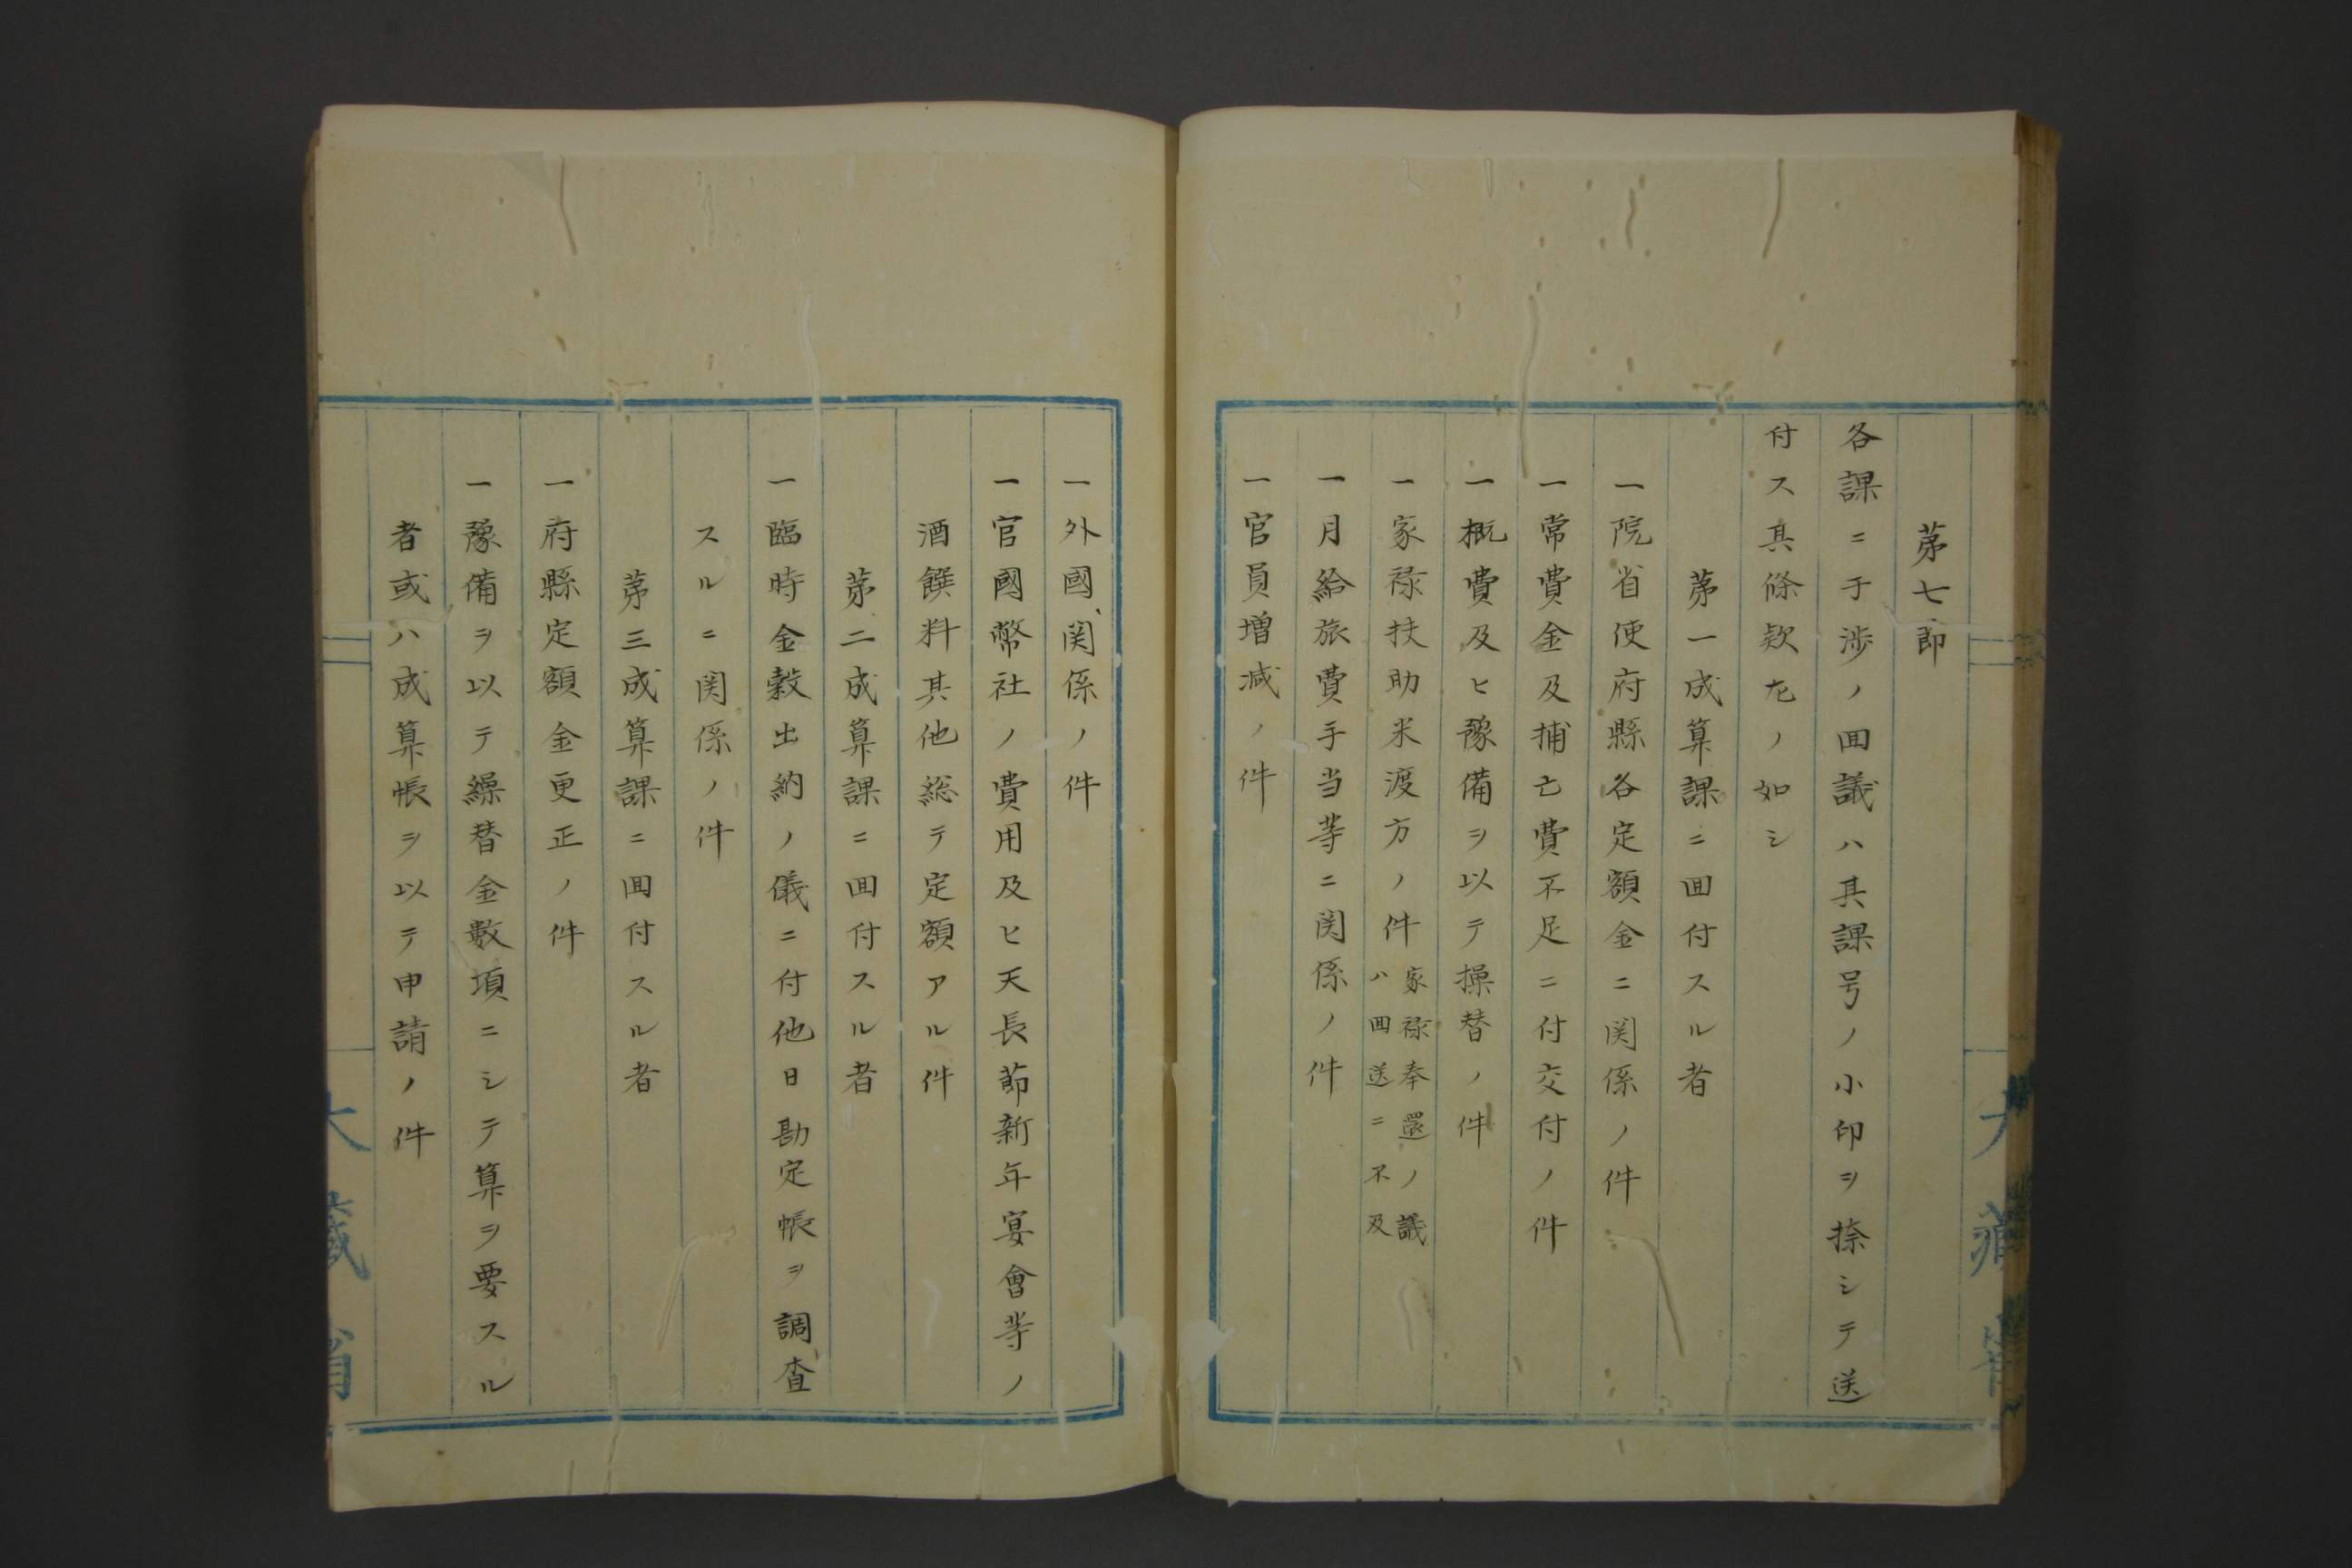 第七節
各課ニ于渉ノ回議ハ其課号ノ小印ヲ捺シテ送
付ス其條款左ノ如シ
第一成算課ニ回付スル者
一院省使府縣各定額金ニ関係ノ件
一常費金及捕亡費不足ニ付交付ノ件
一概費及ヒ豫備ヲ以テ操替ノ件
一家禄扶助米渡方ノ件 家禄奉還ノ議
ハ回送ニ不及
一月給旅費手当等ニ関係ノ件
一官員増減ノ件
一外國関係ノ件
一官國幣社ノ費用及ヒ天長節新年宴會等ノ
酒饌料其他総テ定額アル件
第二成算課ニ回付スル者
一臨時金穀出納ノ儀ニ付他日勘定帳ヲ調査
スルニ関係ノ件
第三成算課ニ回付スル者
一府縣定額金更正ノ件
一豫備ヲ以テ繰替金數項ニシテ算ヲ要スル
者或ハ成算帳ヲ以テ申請ノ件
大藏省